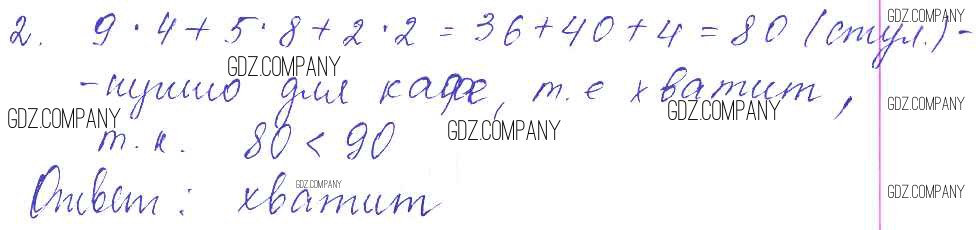 2. 9 · 4 + 5 · 8 + 2 · 2 = 36 + 40 + 4 = 80 (стул.) -
- нужно для кафе, т.е хватит,
т.к. 80 < 90
Ответ: хватит
GDZ.COMPANY
GDZ.COMPANY
GDZ.COMPANY
GDZ.COMPANY
GDZ.COMPANY
GDZ.COMPANY
GDZ.COMPANY
GDZ.COMPANY